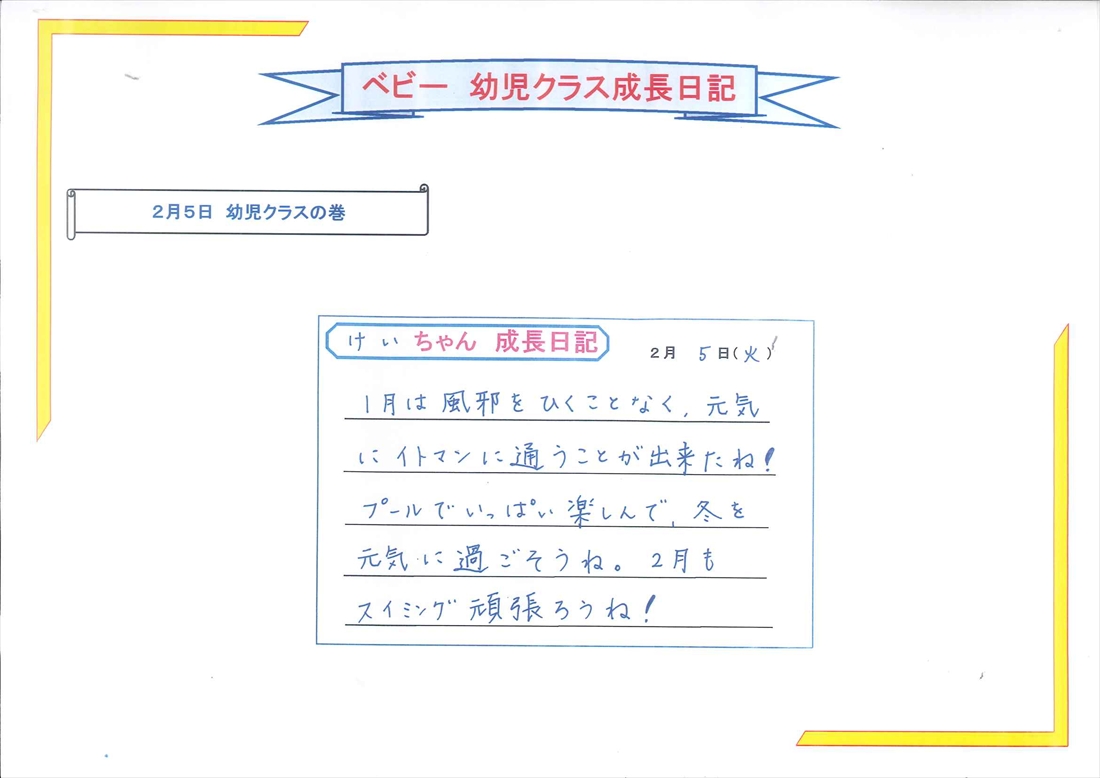 ベビー 幼児クラス成長日記
2月5日 幼児クラスの巻
けいちゃん 成長日記
2月 5日(火)
1月は風邪をひくことなく、元気
にイトマンに通うことが出来たね!
プールでいっぱい楽しんで、冬を
元気に過ごそうね。2月も
スイミング頑張ろうね!